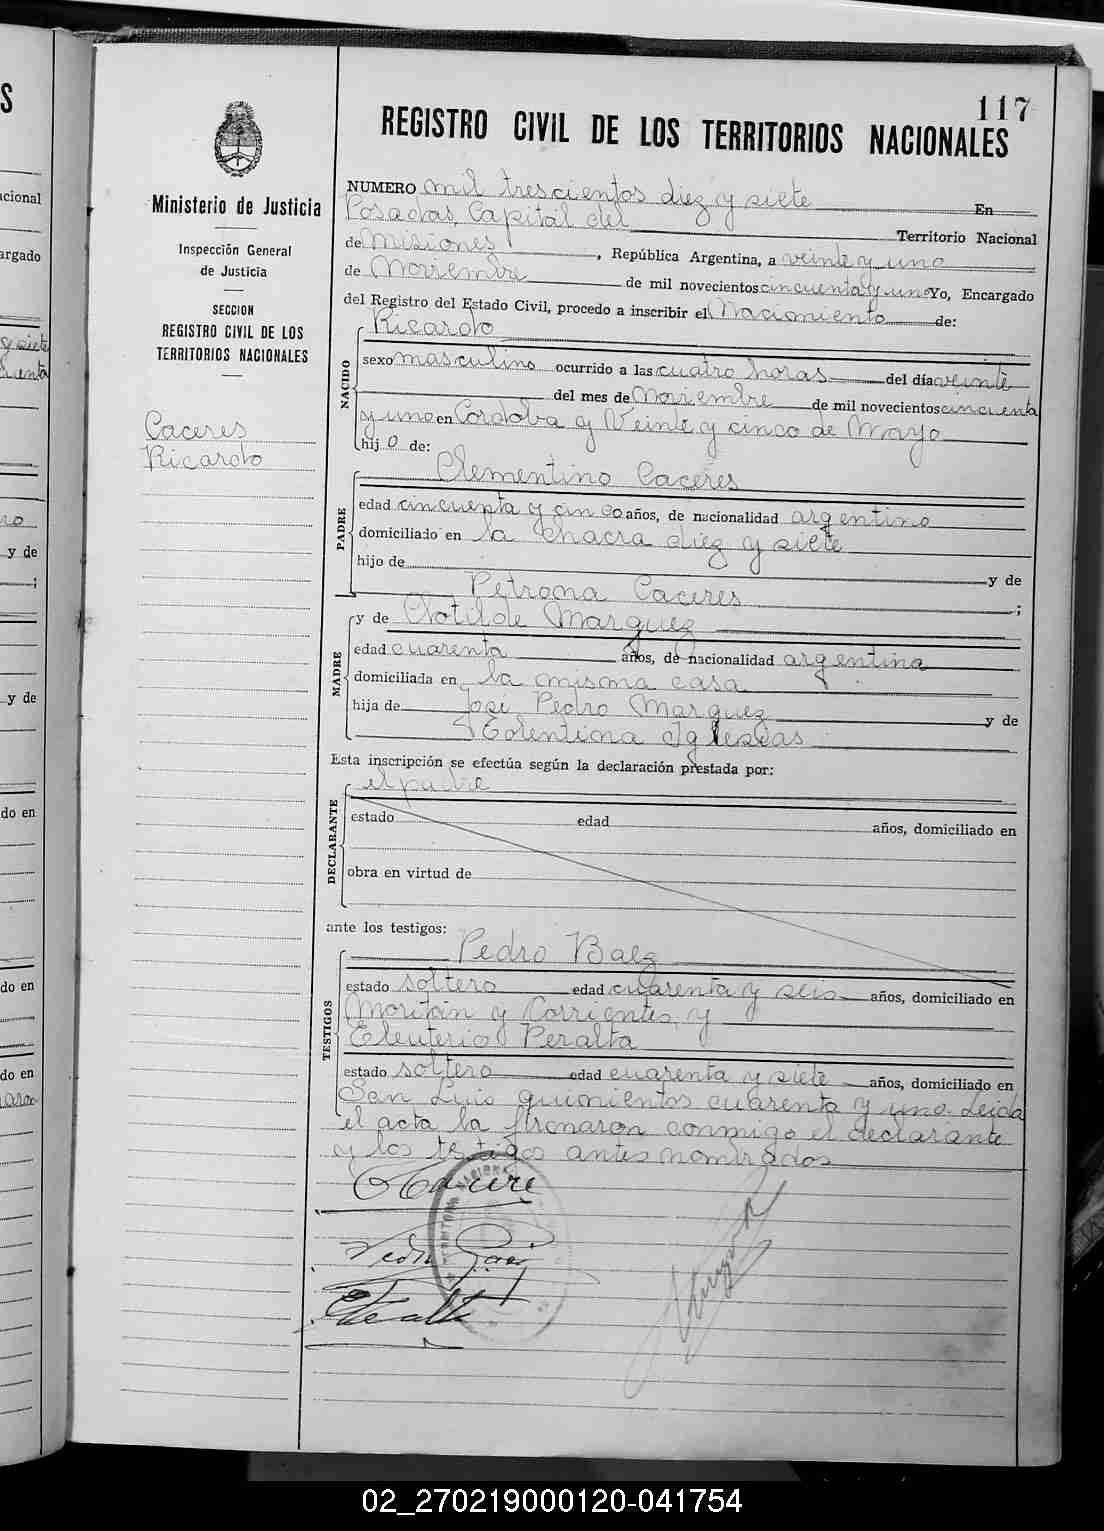 117
REGISTRO CIVIL DE LOS TERRITORIOS NACIONALES
Ministerio de Justicia
Inspección General
de Justicia
SECCION
REGISTRO CIVIL DE LOS
TERRITORIOS NACIONALES
Caceres
Ricardo
NUMERO mil trescientos diez y siete En
Posadas, Capital del Territorio Nacional
de Misiones, República Argentina, a veinte y uno
de Noviembre de mil novecientos cincuenta y uno Yo, Encargado
del Registro del Estado Civil, procedo a inscribir el Nacimiento de:
NACIDO
Ricardo
sexo masculino ocurrido a las cuatro horas del día veinte
del mes de Noviembre de mil novecientos cincuenta
y uno en Cordoba y Veinte y cinco de Mayo
hijo de:
PADRE
Clementino Caceres
edad cincuenta y cinco años, de nacionalidad argentino
domiciliado en la chacra diez y siete
hijo de y de
Petrona Caceres ;
MADRE
y de Clotilde Marquez
edad cuarenta años, de nacionalidad argentina
domiciliada en la misma casa
hija de José Pedro Marquez y de
Tolentina Iglesias
Esta inscripción se efectúa según la declaración prestada por:
DECLARANTE
el padre
estado edad años, domiciliado en
obra en virtud de
ante los testigos:
TESTIGOS
Pedro Baez
estado soltero edad cuarenta y seis años, domiciliado en
Moritán y Corrientes, y
Eleuterio Peralta
estado soltero edad cuarenta y siete años, domiciliado en
San Luis quinientos cuarenta y uno. Leida
el acta la firmaron conmigo el declarante
y los testigos antes nombrados
02_270219000120-041754